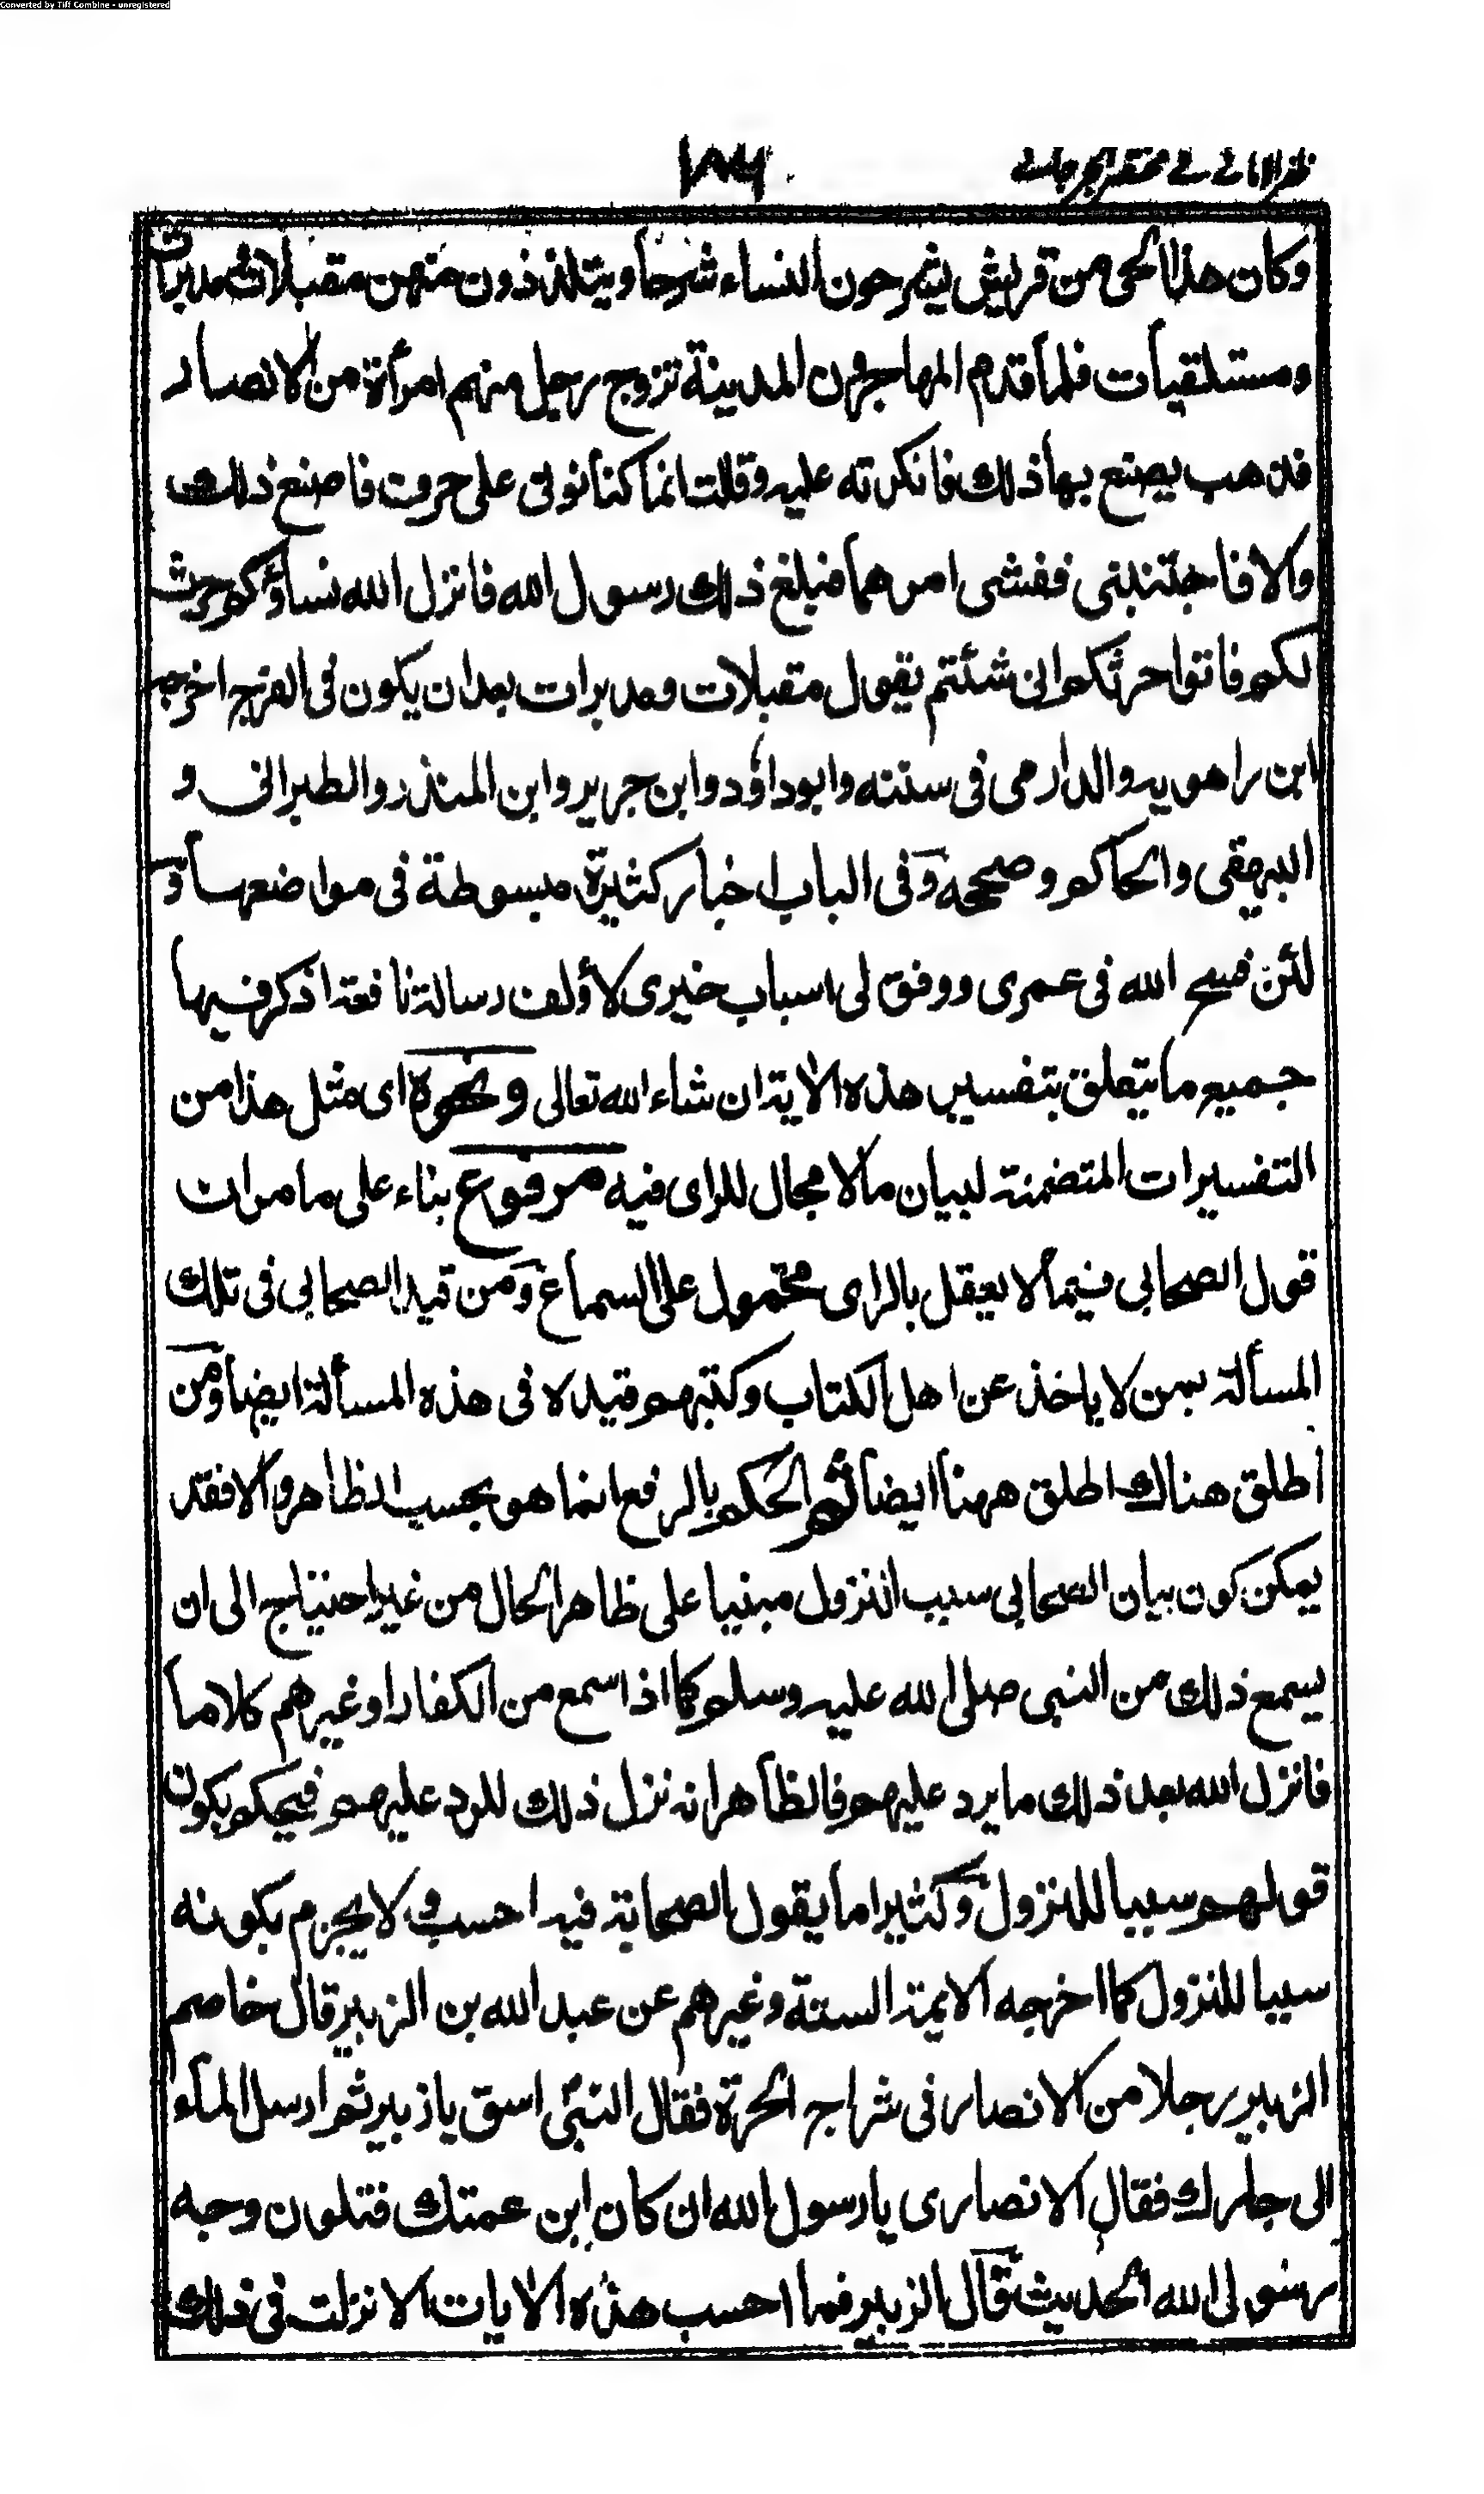 Converted by Tiff Combine - unregistered
ظفر الامانی فی مختصر الجرجانی
١٨٤
وكان هذا الحى من قريش يشرحون النساء شرحا ويتلذذون منهن مقبلات ومدبرات
ومستلقيات فلما قدم المهاجرون المدينة تزوج رجل منهم امرأة من الانصار
فذهب يصنع بها ذلك فانكرته عليه وقلت انما كنا نوتى على حرف فاصنع ذلك
والا فاجتنبنى ففشى امرهما فبلغ ذلك رسول الله فانزل الله نساؤكم حرث
لكم فاتوا حرثكم انى شئتم يقول مقبلات ومدبرات بعد ان يكون فى الفرج اخرجه
ابن راهويه والدارمى فى سننه وابوداؤد وابن جرير وابن المنذر والطبرانى و
البيهقى والحاكم وصححه وفى الباب اخبار كثيرة مبسوطة فى مواضعها و
لئن فسح الله فى عمرى ووفق لى اسباب خيرى لأؤلف رسالة نافعة اذكر فيها
جميع ما يتعلق بتفسير هذه الاية ان شاء الله تعالى ونحوه اى مثل هذا من
التفسيرات المتضمنة لبيان ما لا مجال للراى فيه مرفوع بناء على ما مر ان
قول الصحابى فيما لا يعقل بالراى محمول على السماع ومن قيد الصحابى فى تلك
المسألة بمن لا ياخذ عن اهل الكتاب وكتبهم قيده فى هذه المسألة ايضا ومن
اطلق هناك اطلق ههنا ايضا ثم الحكم بالرفع انما هو بحسب الظاهر والا فقد
يمكن كون بيان الصحابى سبب النزول مبنيا على ظاهر الحال من غير احتياج الى ان
يسمع ذلك من النبى صلى الله عليه وسلم كما اذا سمع من الكفار او غيرهم كلاما
فانزل الله بعد ذلك ما يرد عليهم فالظاهر انه نزل ذلك للرد عليهم فيحكم بكون
قولهم سببا للنزول وكثيرا ما يقول الصحابة فيه احسب ولا يجزم بكونه
سببا للنزول كما اخرجه الايمة الستة وغيرهم عن عبد الله بن الزبير قال خاصم
الزبير رجلا من الانصار فى شراج الحرة فقال النبى اسق يا زبير ثم ارسل الماء
الى جارك فقال الانصارى يا رسول الله ان كان ابن عمتك فتلون وجه
رسول الله الحديث قال الزبير فما احسب هذه الايات الا نزلت فى ذلك